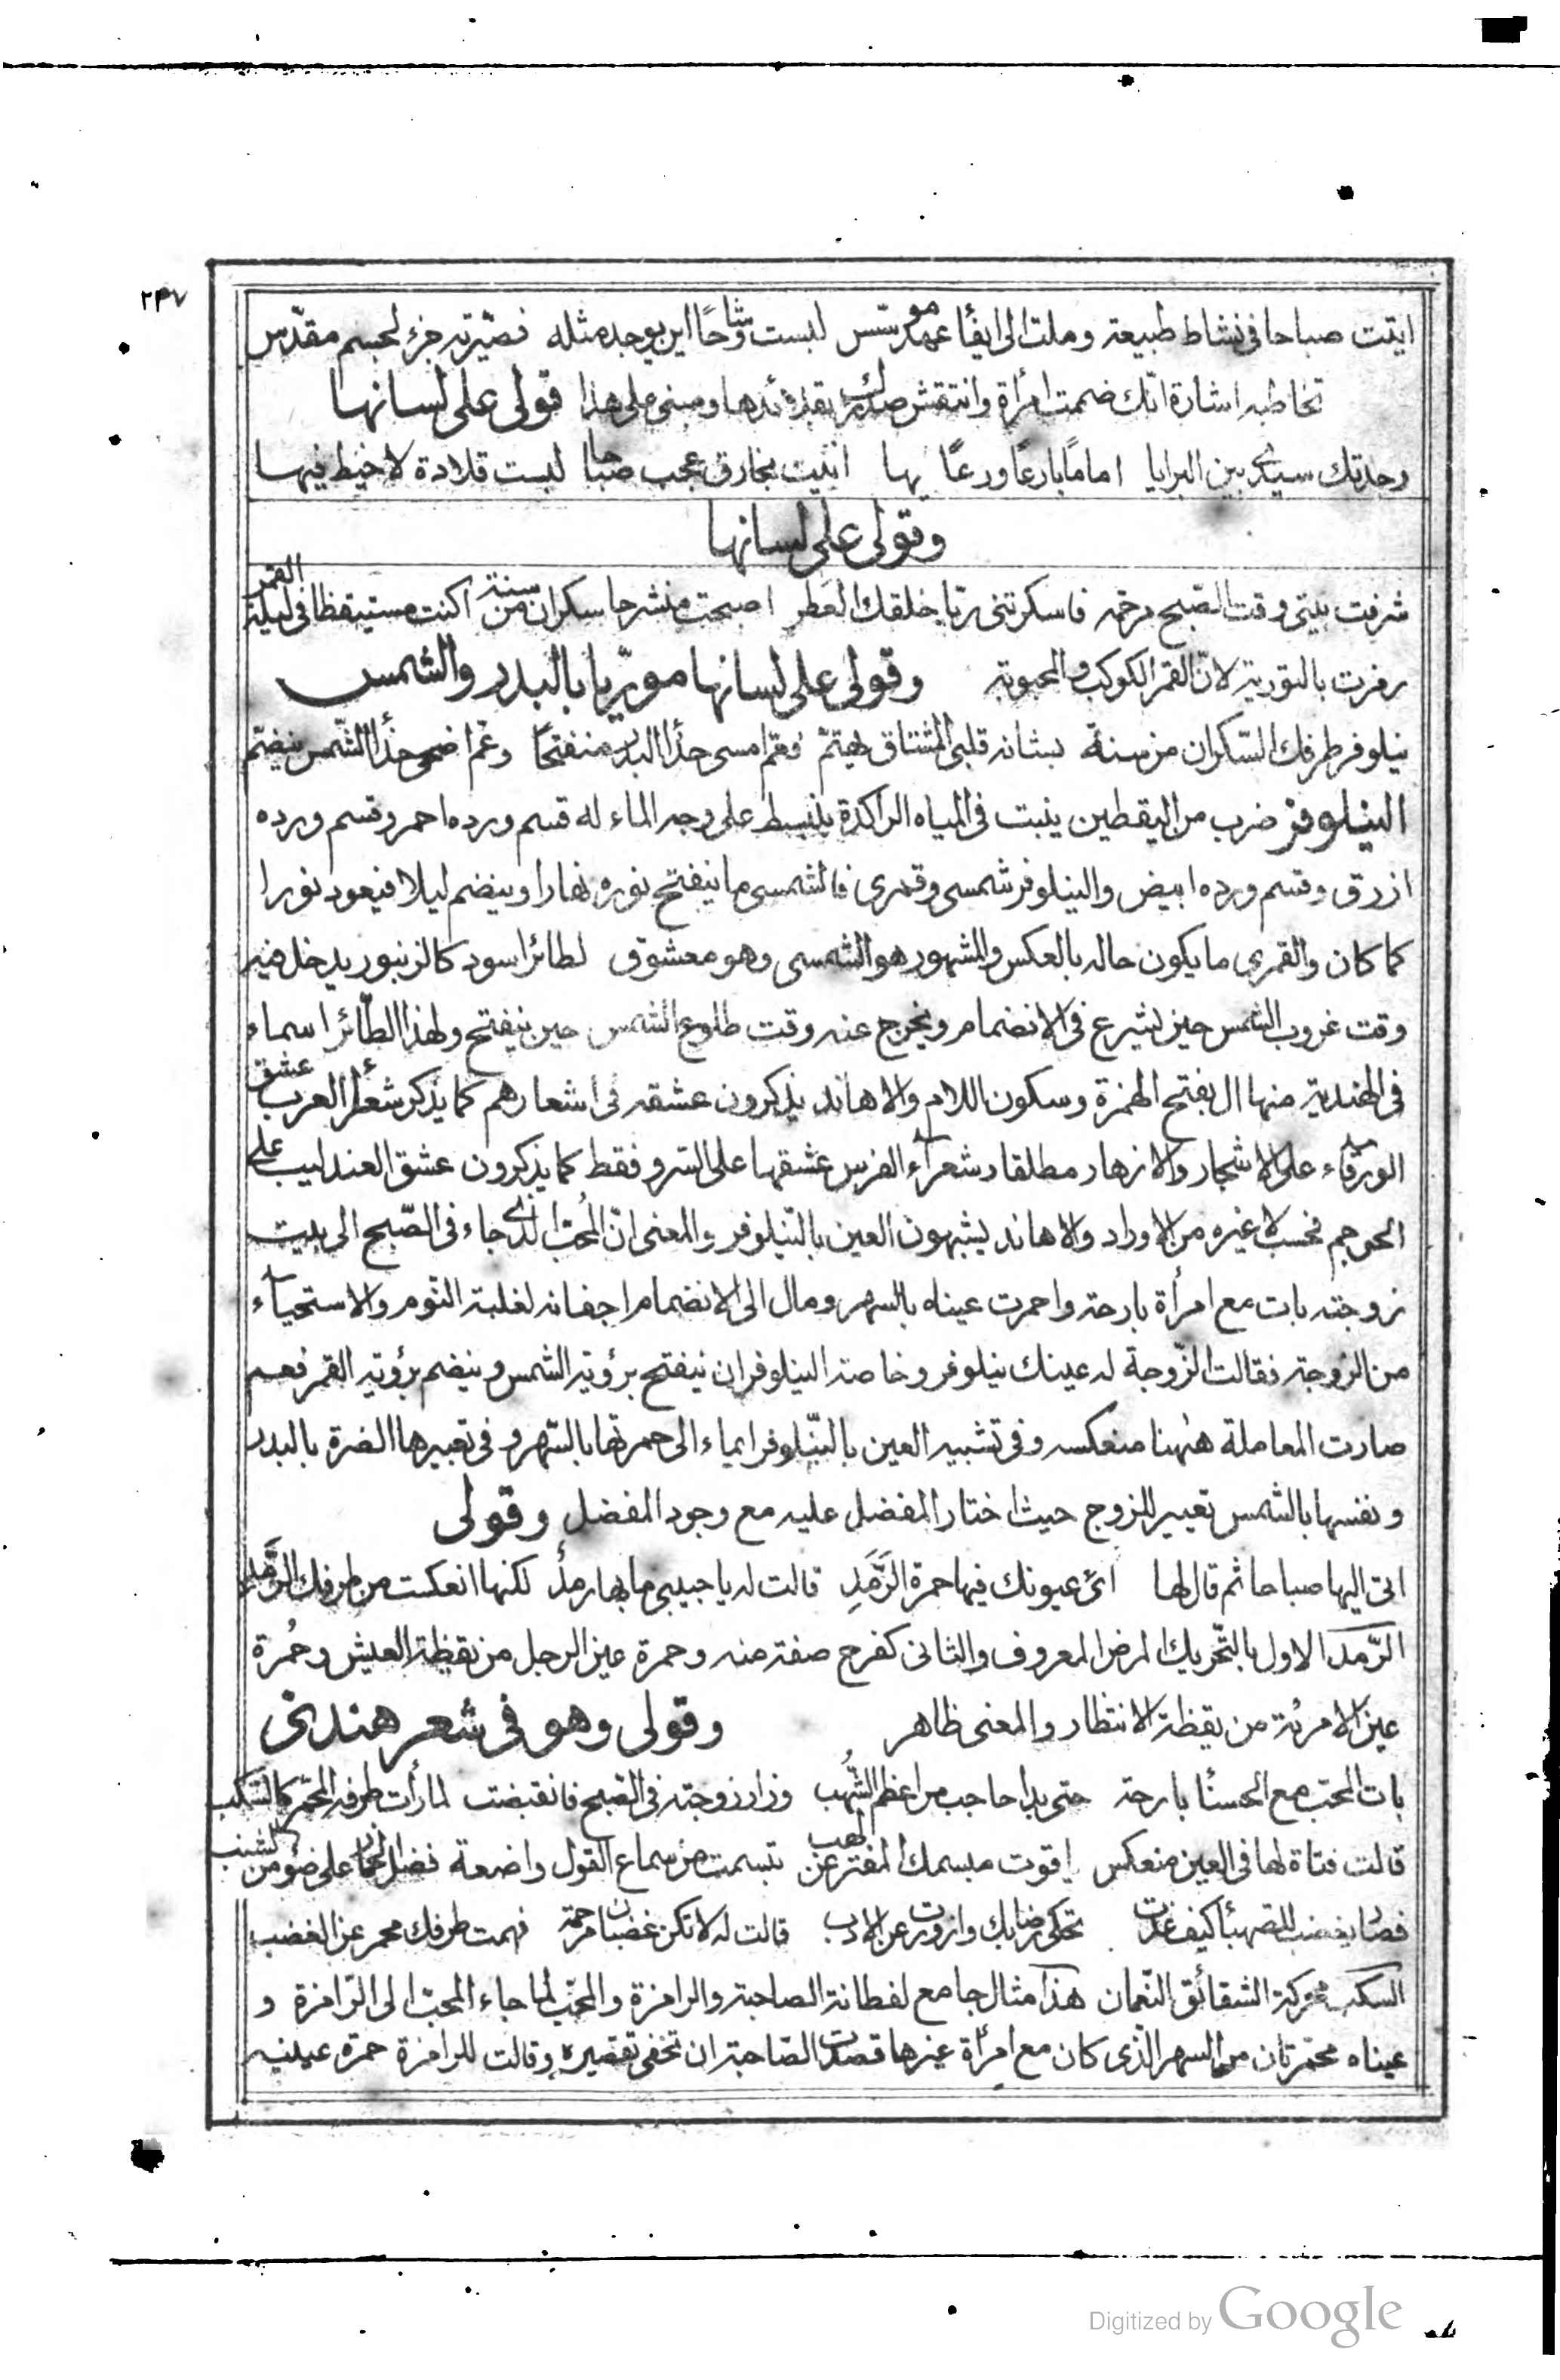 ٢٣٧
اتيت صباحا فى نشاط طبيعة وملت الى ايفأ عهد موسّس لبست وشاحًا اين يوجد مثله فصيّرته جزء لجسم مقدّس
تخاطبه اشارة انّك ضممت امرأة وانتقش صدرك بقلائدها ومبنى على هذا قولى على لسانها
وجدتك سيدى بين البرايا امامًا بارعًا ورعًا بها اتيت بخارق عجب صباحا لبست قلادة لا خيط فيها
وقولى على لسانها
شرفت بيتى وقت الصّبح مرحمة فاسكرتنى ريّا خلقك العَطِر اصبحت منشرحا سكران من سنة اكنت مستيقظا فى ليلة القمر
رمزت بالتورية لانّ القمر الكوكب والمحبوبة وقولى على لسانها مورّيا بالبدر والشمس
نيلوفر طرفك السّكران من سنة بشانه قلبى المشتاق يهتمّ فعم امسى حذأ البدر منفتحًا وعم اضحى حذأ الشّمس ينضمّ
النيلوفر ضرب من اليقطين ينبت فى المياه الراكدة ينبسط على وجه الماء له قسم ورده احمر وقسم ورده
ازرق وقسم ورده ابيض والنيلوفر شمسى وقمرى فالشمسى ما ينفتح نوره نهارا وينضم ليلا فيعود نورا
كما كان والقمرى ما يكون حاله بالعكس والمشهور هو الشمسى وهو معشوق لطائر اسود كالزنبور يدخل فيه
وقت غروب الشمس حين يشرع فى الانضمام ويخرج عنه وقت طلوع الشمس حين ينفتح ولهذا الطّائر اسماء
فى الهندية منها ال بفتح الهمزة وسكون اللام والاهاند يذكرون عشقه فى اشعارهم كما يذكر شعرأ العرب عشق
الورقاء على الاشجار والازهار مطلقا وشعرآء الفرس عشقها على السّرو فقط كما يذكرون عشق العندليب على
الحوجم فحسب لا غيره من الاوراد والاهاند يشبهون العين بالنّيلوفر والمعنى انّ المُحبّ الذى جاء فى الصّبح الى بيت
زوجته بات مع امرأة بارحة واحمرت عيناه بالسهر ومال الى الانضمام اجفانه لغلبة النّوم والاستحياء
من الزوجة فقالت الزّوجة له عينك نيلوفر وخاصة النيلوفر ان ينفتح برؤية الشمس وينضم برؤية القمر فعم
صارت المعاملة ههُنا منعكسه وفى تشبيه العين بالنّيلوفر ايماء الى حمرتها بالسّهر وفى تعبيرها الضرة بالبدر
ونفسها بالشمس تعيير للزوج حيث اختار المفضل عليه مع وجود المفضل وقولى
اتى اليها صباحا ثم قال لها ارى عيونك فيها حمرة الرَّمَدِ قالت له يا حبيبى ما بها رمدٌ لكنها انعكست من طرفك الرَّمد
الرّمد الاول بالتّحريك المرض المعروف والثانى كفرح صفة منه وحمرة عين الرجل من يقظة العيش وحُمرة
عين الامرئة من يقظة الانتظار والمعنى ظاهر وقولى وهو فى شعر هندى
بات المحب مع الحسنأ بارحة حتى بدا حاجب من اعظم الشُّهب وزار زوجته فى الصبح فانقبضت لما رأت طرفه المحمر كالسّكب
قالت فتاة لها فى العين منعكس ياقوت مبسمك المفتر عن لهب تبسمت من سماع القول واضعة على ضوء من الشنب
تحكى رضابك وازورت عن الادب قالت له لا تكن غضبان مرحمة فهمت طرفك محمر عن الغضب
السكب محركة الشقائق النّعمان هذا مثال جامع لفطانة الصاحبة والرامزة والمحبّ لما جاء المحبّ الى الرّامزة و
عيناه محمرتان من السهر الّذى كان مع امرأة غيرها قصدت الصّاحبة ان تخفى تقصيره وقالت للرامزة حمرة عينيه
Digitized by Google